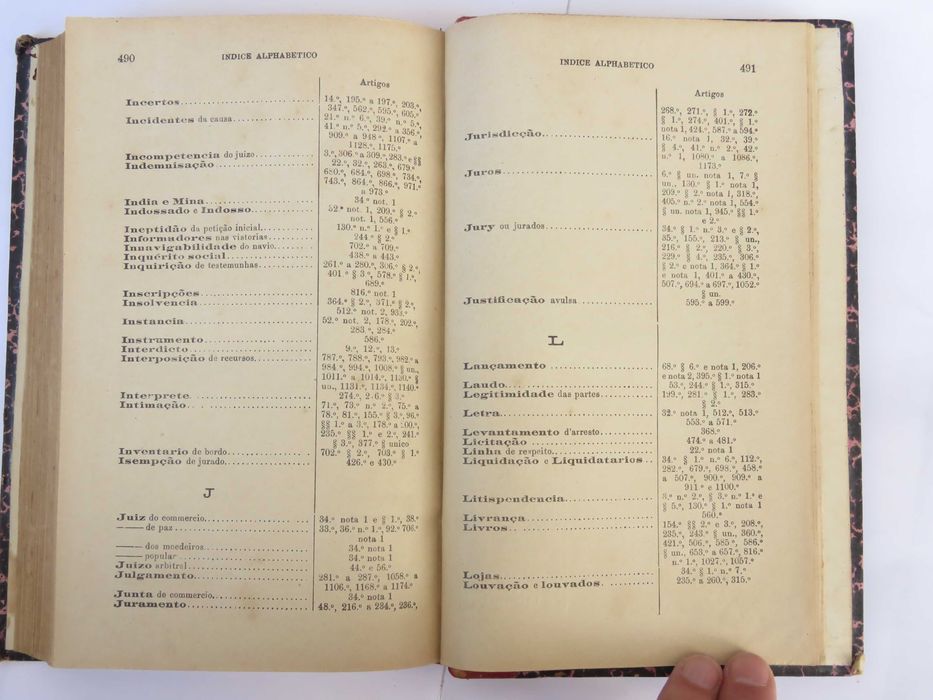 490
INDICE ALPHABETICO
Artigos
Incertos
14.º, 195.º a 197.º, 203.º,
347.º, 562.º, 595.º, 605.º
Incidentes da causa
21.º n.º 6.º, 39.º n.º 5.º,
41.º n.º 5.º, 292.º a 356.º
909.º a 948.º, 1107.º a
1128.º, 1175.º
Incompetencia do juizo
3.º, 306.º a 309.º, 283.º e §§
Indemnisação
22.º, 32.º, 263.º, 679.º
680.º, 684.º, 698.º, 734.º,
743.º, 864.º, 866.º, 971.º
a 973.º
India e Mina
34.º not. 1
Indossado e Indosso
52.º not. 1, 209.º § 2.º
not. 1, 556.º
Ineptidão da petição inicial
130.º n.º 1.º e § 1.º
Informadores nas vistorias
244.º § 2.º
Innavigabilidade do navio
702.º a 709.º
Inquérito social
438.º a 443.º
Inquirição de testemunhas
261.º a 280.º, 306.º § 2.º,
401.º § 3.º, 578.º § 1.º,
689.º
Inscripções
816.º not. 1
Insolvencia
364.º § 2.º, 371.º § 2.º,
512.º not. 2, 933.º
Instancia
52.º not. 2, 178.º, 202.º,
283.º, 284.º
Instrumento
586.º
Interdicto
9.º, 12.º, 13.º
Interposição de recursos
787.º, 788.º, 793.º, 982.º a
984.º, 994.º, 1008.º § un.,
1011.º a 1014.º, 1130.º §
un., 1131.º, 1134.º, 1140.º
Interprete
274.º, § 3.º
Intimação
71.º, 73.º n.º 2.º, 75.º a
78.º, 81.º, 155.º § 3.º, 96.º
§§ 1.º a 3.º, 178.º a 200.º,
235.º §§ 1.º e 2.º, 241.º
§ 3.º, 377.º § unico
Inventario de bordo
702.º § 2.º, 703.º § 1.º
Isempção de jurado
426.º e 430.º
J
Juiz do commercio
34.º nota 1 e § 1.º, 38.º
—— de paz
33.º, 36.º n.º 1.º, 92.º 706.º
nota 1
—— dos moedeiros
34.º nota 1
—— popular
34.º nota 1
Juizo arbitral
44.º e 56.º
Julgamento
281.º a 287.º, 1058.º a
1106.º, 1168.º a 1174.º
Junta do commercio
34.º nota 1
Juramento
48.º, 216.º a 234.º, 236.º,
INDICE ALPHABETICO
491
Artigos
268.º, 271.º, § 1.º, 272.º
§ 1.º, 274.º, 401.º, § 1.º
nota 1, 424.º, 587.º a 594.º
Jurisdicção
16.º nota 1, 32.º, 39.º
§ 4.º, 41.º n.º 2.º, 42.º
n.º 1, 1080.º a 1086.º,
1173.º
Juros
6.º § un. nota 1, 7.º §
un., 130.º § 1.º nota 1,
209.º § 2.º nota 1, 318.º,
405.º n.º 2.º nota 1, 554.º
§ un. nota 1, 945.º §§ 1.º
e 2.º
Jury ou jurados
34.º § 1.º n.º 3.º e § 2.º,
35.º, 155.º, 213.º § un.,
216.º § 2.º, 220.º § 3.º,
229.º § 4.º, 235.º, 306.º
§ 2.º e nota 1, 364.º § 1.º
e nota 1, 401.º a 430.º,
507.º, 694.º a 697.º, 1052.º
§ un.
Justificação avulsa
595.º a 599.º
L
Lançamento
68.º § 6.º e nota 1, 206.º
e nota 2, 395.º § 1.º nota 1
Laudo
53.º, 244.º § 1.º, 315.º
Legitimidade das partes
199.º, 281.º § 1.º, 283.º
§ 2.º
Letra
32.º nota 1, 512.º, 513.º
553.º a 571.º
Levantamento d'arresto
368.º
Licitação
474.º a 481.º
Linha de respeito
22.º nota 1
Liquidação e Liquidatarios
34.º § 1.º n.º 6.º, 112.º,
282.º, 679.º, 698.º, 458.º
a 507.º, 900.º, 909.º a
911.º e 1100.º
Litispendencia
3.º n.º 2.º, § 3.º n.º 1.º e
§ 5.º, 130.º § 1.º nota 1
Livrança
560.º
Livros
154.º §§ 2.º e 3.º, 208.º,
235.º, 243.º § un., 360.º,
421.º, 506.º, 585.º, 586.º
§ un., 653.º a 657.º, 816.º
n.º 1.º, 1027.º, 1057.º
Lojas
34.º § 1.º n.º 7.º
Louvação e louvados
235.º a 260.º, 315.º